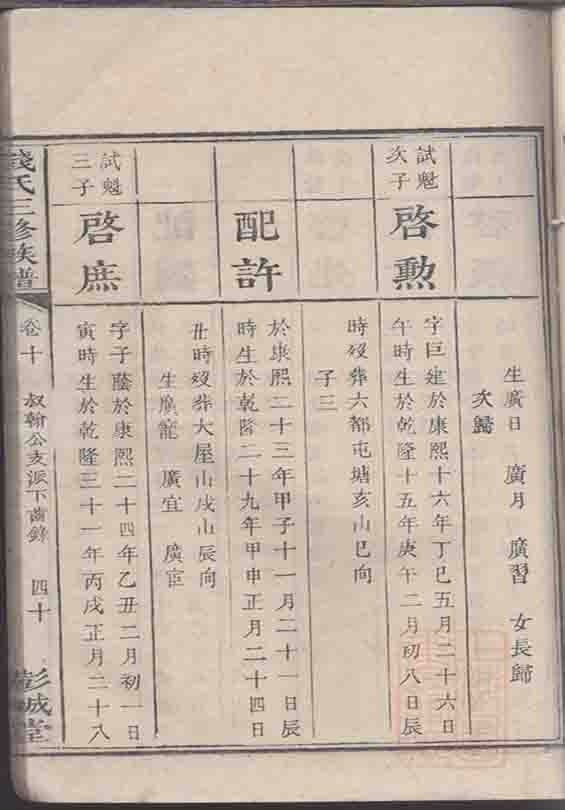 生廣日　廣月　廣習　女長歸
次歸
試魁
次子
啓勲
字巨建於康熙十六年丁巳五月二十六日
午時生於乾隆十五年庚午二月初八日辰
時歿葬六都屯塘亥山巳向
子三
配許
於康熙二十三年甲子十一月二十一日辰
時生於乾隆二十九年甲申正月二十四日
丑時歿葬大屋山戌山辰向
生廣寵　廣宜　廣宦
試魁
三子
啓庶
字子蔭於康熙二十四年乙丑二月初一日
寅時生於乾隆三十一年丙戌正月二十八
錢氏三修族譜
卷十
叔翰公支派下齒錄
四十
彭城堂